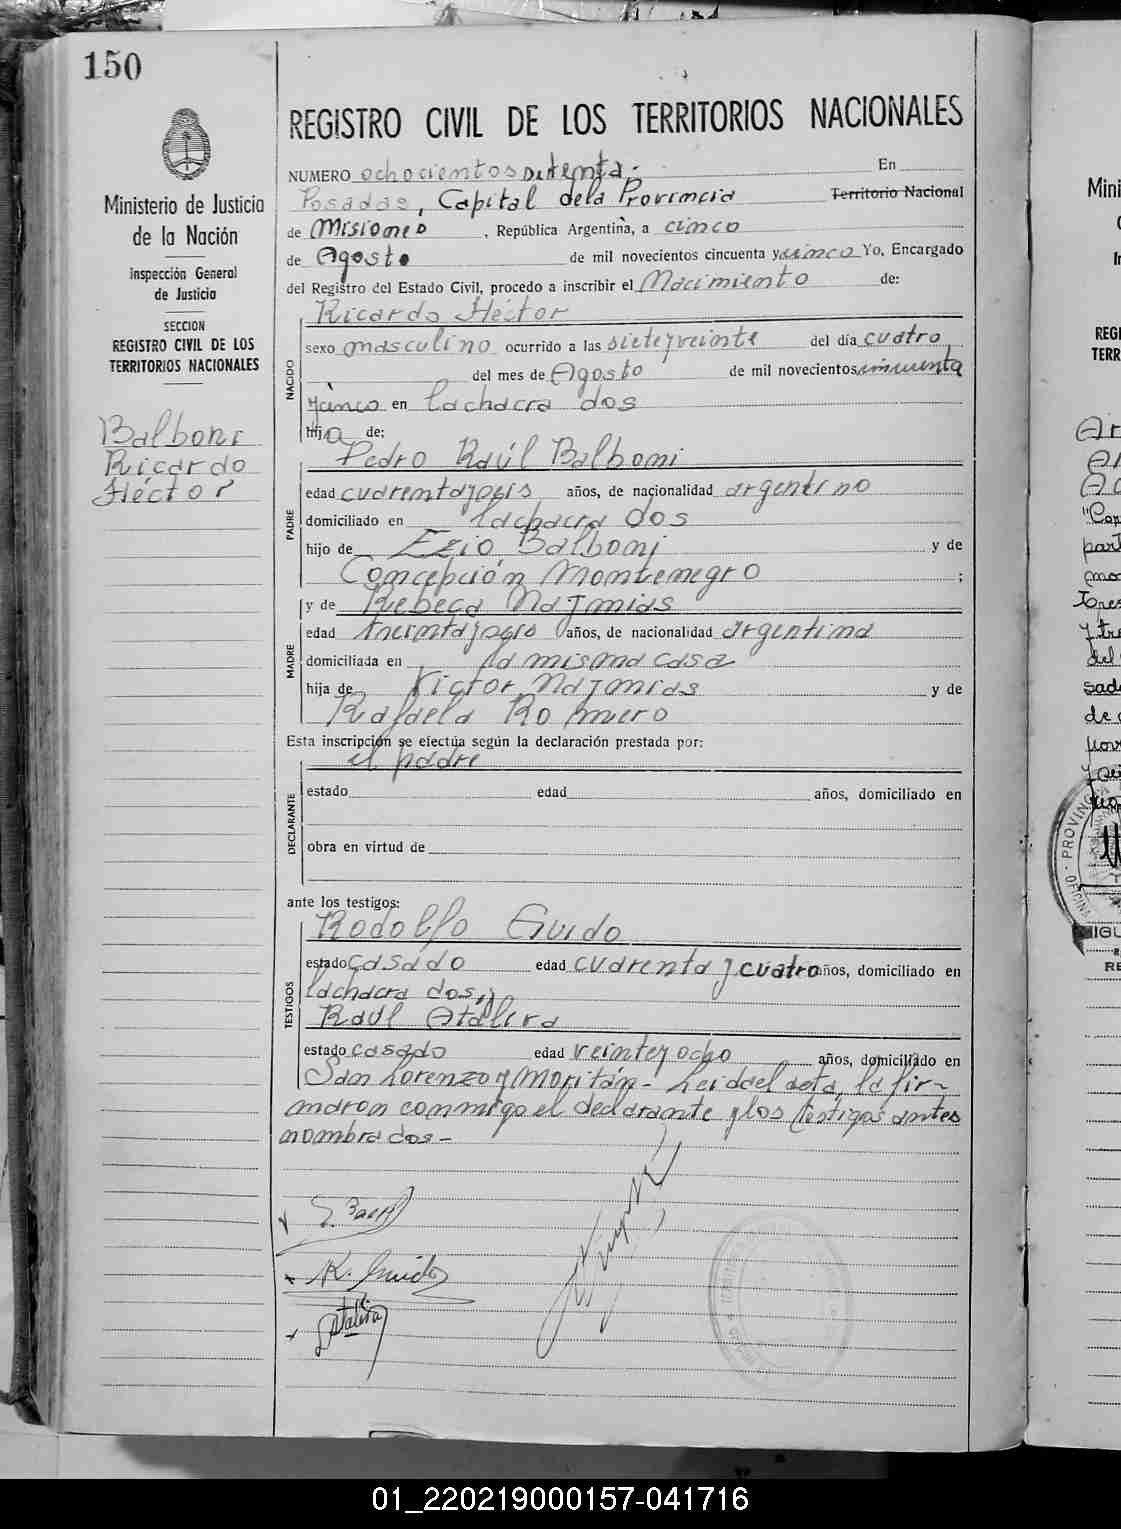 150
Ministerio de Justicia
de la Nación
Inspección General
de Justicia
SECCION
REGISTRO CIVIL DE LOS
TERRITORIOS NACIONALES
Balboni
Ricardo
Héctor
REGISTRO CIVIL DE LOS TERRITORIOS NACIONALES
NUMERO ochocientos setenta.- En
Posadas, Capital dela Provincia Territorio Nacional
de Misiones, República Argentina, a cinco
de Agosto de mil novecientos cincuenta y cinco Yo, Encargado
del Registro del Estado Civil, procedo a inscribir el Nacimiento de:
Ricardo Héctor
NACIDO
sexo masculino ocurrido a las sieteyveinte del día cuatro
del mes de Agosto de mil novecientos cincuenta
ycinco en lachacra dos
hijo de:
Pedro Raúl Balboni
PADRE
edad cuarentayseis años, de nacionalidad argentino
domiciliado en lachacra dos
hijo de Ezio Balboni y de
Concepción Montenegro ;
y de Rebeca Najmias
MADRE
edad treintayseis años, de nacionalidad argentina
domiciliada en la misma casa
hija de Victor Najmias y de
Rafaela Romero
Esta inscripción se efectúa según la declaración prestada por:
el padre
DECLARANTE
estado edad años, domiciliado en
obra en virtud de
ante los testigos:
Rodolfo Guido
TESTIGOS
estado casado edad cuarenta y cuatro años, domiciliado en
lachacra dos, y
Raúl Atalira
estado casado edad veinteyocho años, domiciliado en
San Lorenzo y Moritán- Leidael acta, la fir-
maron conmigo el declarante ylos testigos antes
nombrados-
R. Guido
Atalira
01_220219000157-041716